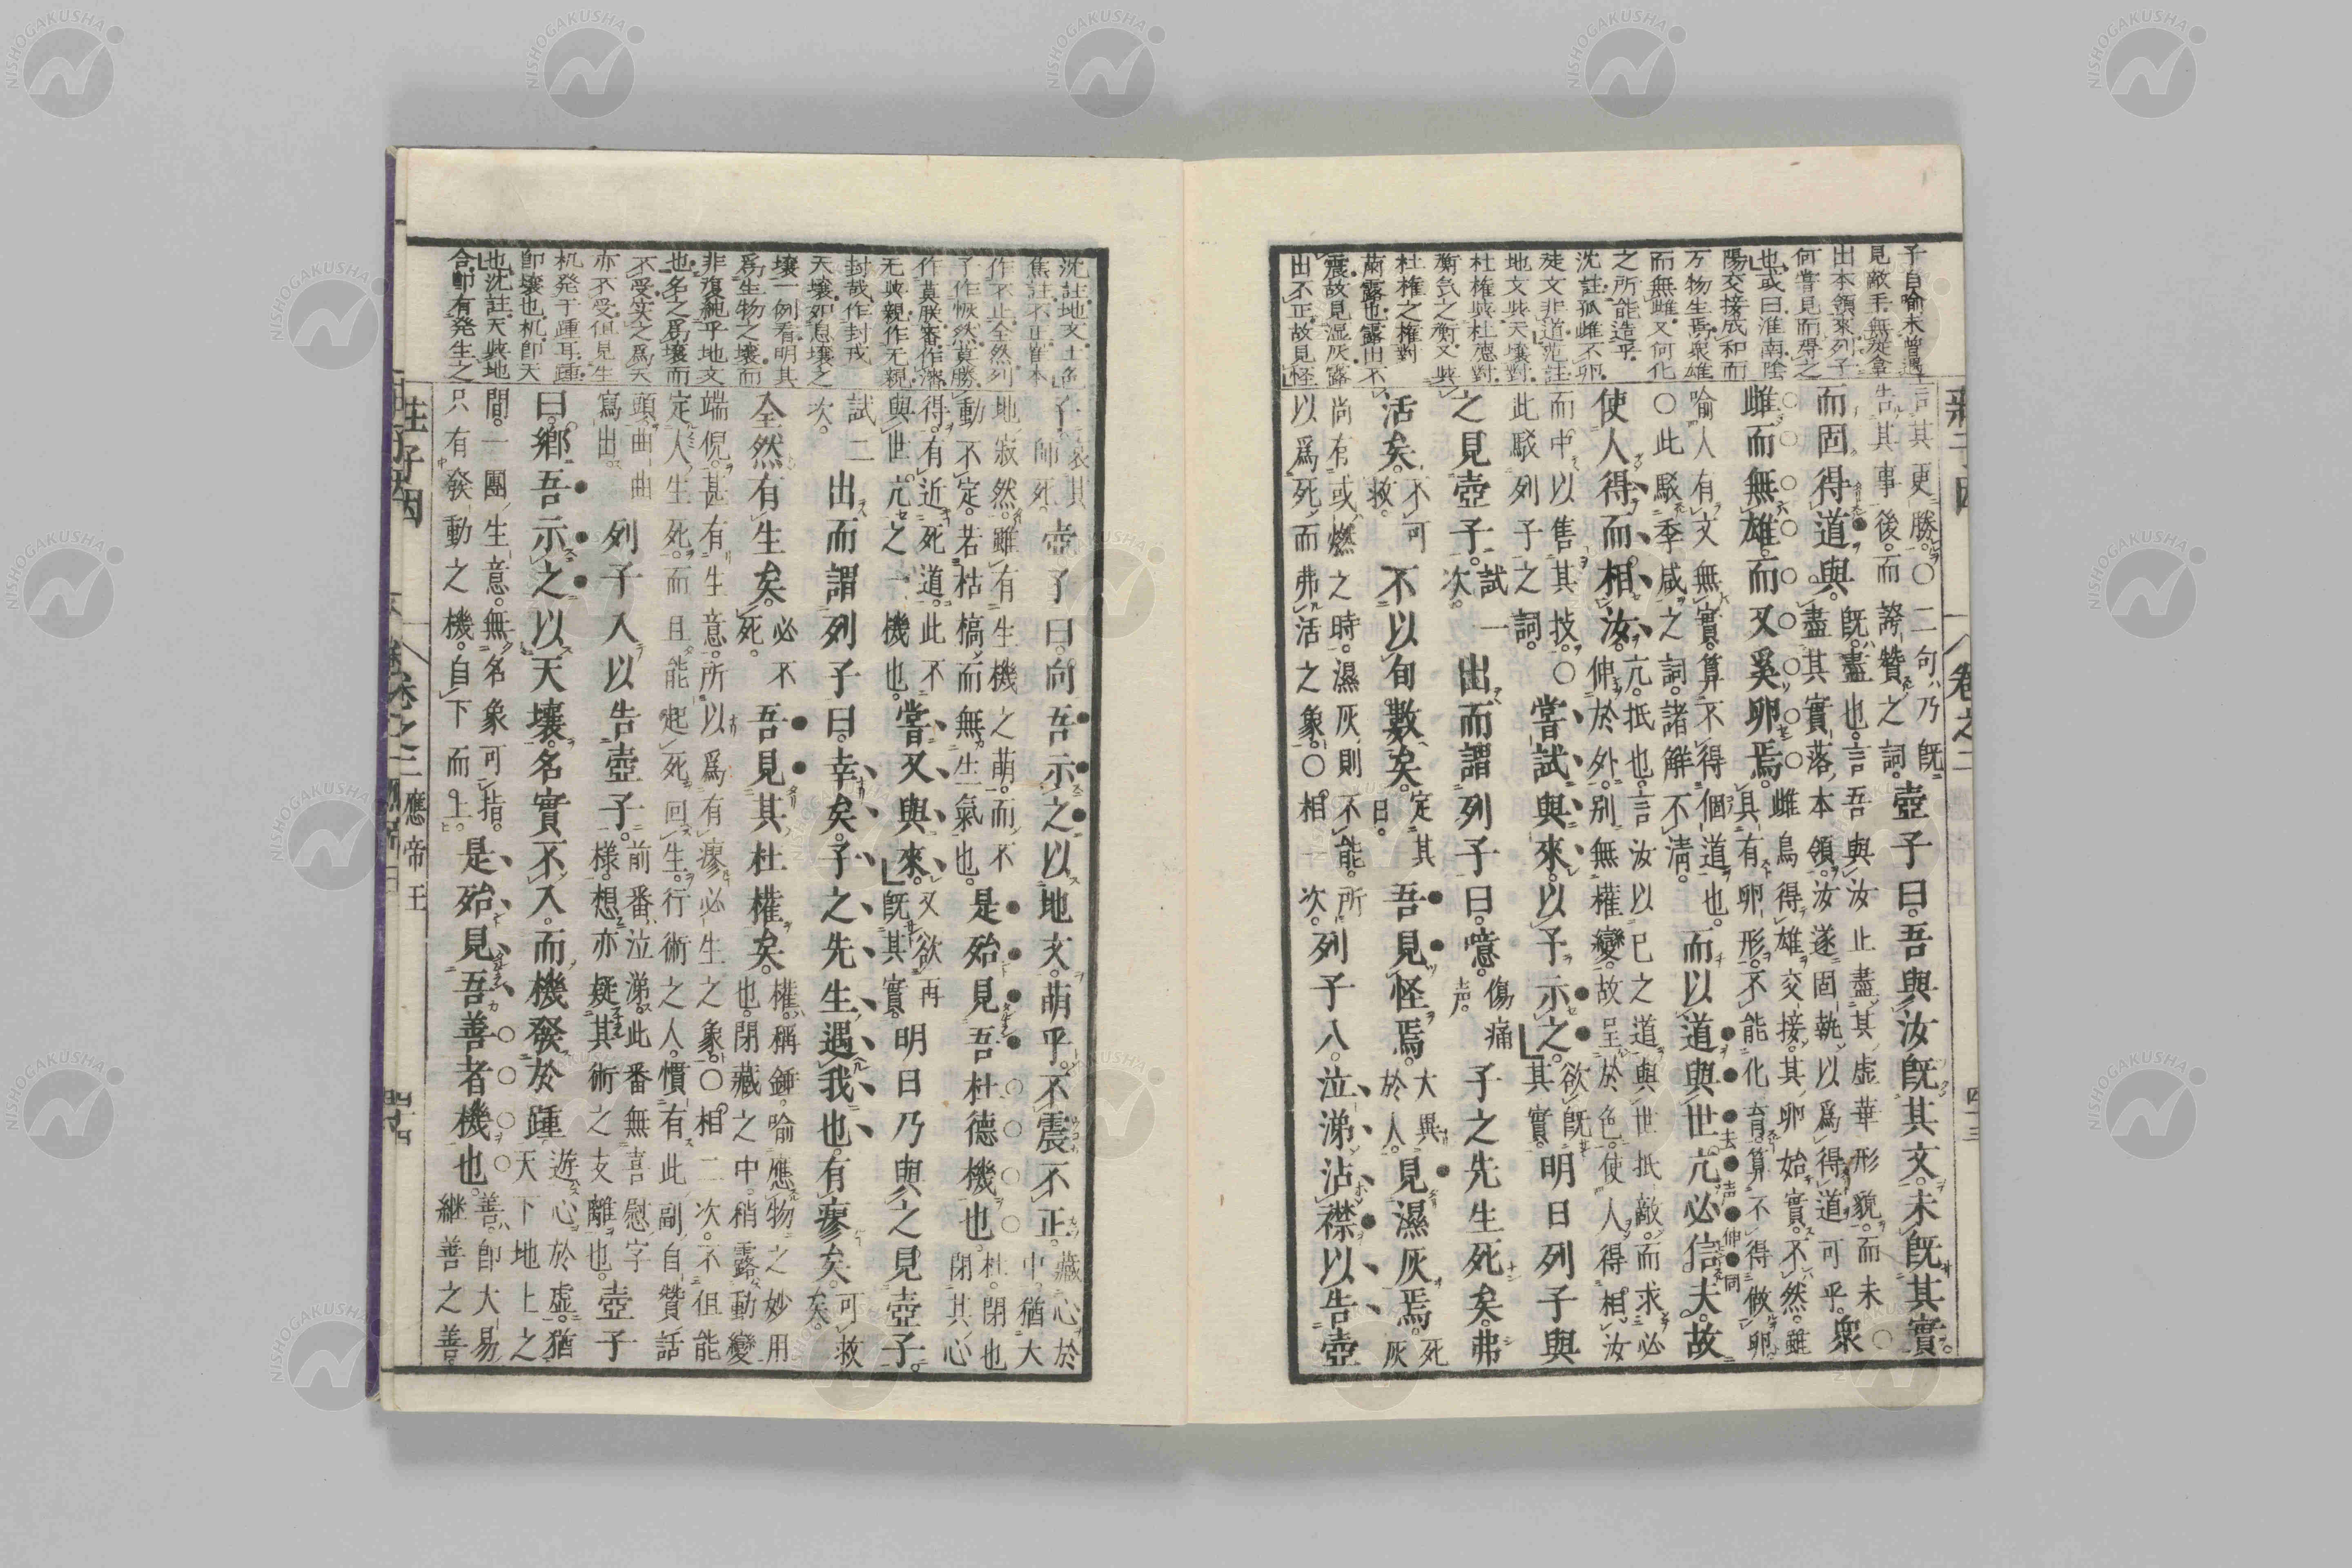 子自喻未曾遇
見敵手無從拿
出本領來列子
何嘗見而得之
也或曰淮南陰
陽交接成和而
万物生焉衆雄
而無雌又何化
之所能造乎
沈註孤雌不卵
徒文非道范註
地文與天壤對
杜權與杜德對
衡氣之衡又與
杜權之權對
菌露也露出不
震故見湿灰露
出不正故見怪
言其更勝。〇二句乃既
告其事後。而誇贊之詞。
壺子曰。吾與汝既其文。未既其實。
既。盡也。言吾與汝止盡其虛華形貌。而未
盡其實落本領。汝遂固執以爲得道可乎。
而固得道與。
衆
雌而無雄。而又奚卵焉。
雌鳥得雄交接。其卵始實。不然。雖
具有卵形。不能化育。算不得做卵
喻人有文無實。算不得個道也。
〇此駁季咸之詞。諸解不淸。
而以道與世亢必信夫。故
使人得而相汝。
亢。抵也。言汝以己之道與世抵敵。而求必
伸於外。別無權變。故呈於色。使人得相汝
而中。以售其技。〇
此駁列子之詞。
嘗試與來。以予示之。
欲既
其實。
明日列子與
之見壺子。
試一
次。
出而謂列子曰。噫。
傷痛
声。
子之先生死矣。弗
活矣。
不可
救。
不以旬數矣。
定其
日。
吾見怪焉。
大異
於人。
見濕灰焉。
死
灰
尚有或燃之時。濕灰則不能。所
以爲死而弗活之象。〇相一次。
列子入。泣涕沾襟以告壺
莊子因
卷之三
應帝王
四十三
沈註地文土色
焦註不正崔本
作不止全然列
子作恢然莫勝
作莫朕審作瀋
无與親作无親
封哉作封戎
天壤如息壤之
壤一例看明其
爲生物之壤而
非復純乎地文
也名之爲壤而
不受实之爲天
亦不受但見生
机発于踵耳踵
卽壤也机卽天
也沈註天與地
合卽有発生之
子。
哀其
師死。
壺子曰。向吾示之以地文。萌乎。不震不正。
藏心於
中。猶大
地寂然。雖有生機之萌。而不
動不定。若枯槁而無生氣也。
是殆見吾杜德機也。
杜。閉也
閉其心
得。有近死道。此不
與世亢之一機也。
嘗又與來。
又欲再
既其實。
明日乃與之見壺子。
試二
次。
出而謂列子曰。幸矣。子之先生遇我也。有瘳矣。
可救
矣。
全然有生矣。
必不
死。
吾見其杜權矣。
權。稱錘。喻應物之妙用
也。閉藏之中。稍露動變
端倪。甚有生意。所以爲有瘳必生之象。〇相二次。不但能
定人生死。而且能起死回生。行術之人。慣有此副自贊話
頭。曲曲
寫出。
列子入以告壺子。
前番泣涕。此番無喜慰字
樣。想亦疑其術之支離也。
壺子
曰。鄉吾示之以天壤。名實不入。而機發於踵。
遊心於虛。猶
天下地上之
間。一團生意。無名象可指。
只有發動之機。自下而上。
是殆見吾善者機也。
善。卽大易
継善之善。
莊子因
卷之三
應帝王
四十四